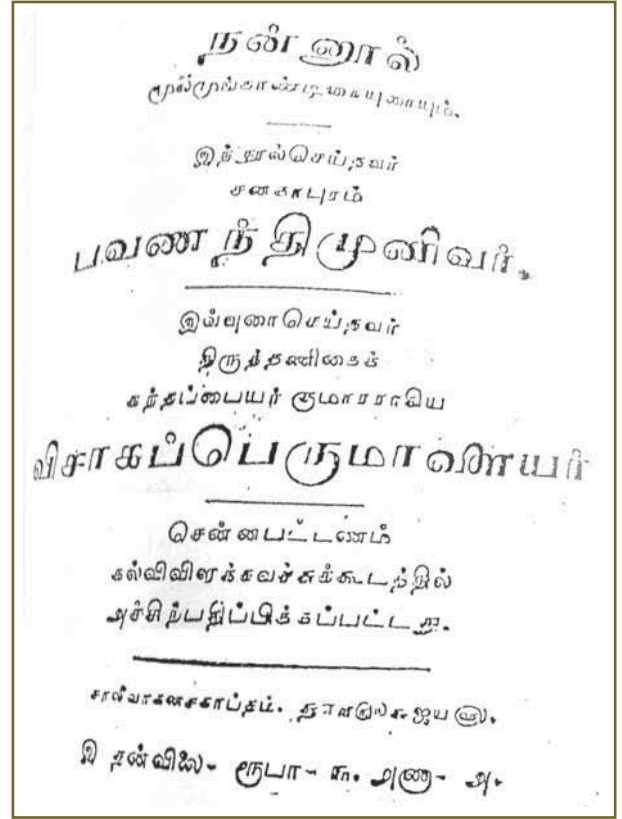 நன்னூல்
மூலமுங்காண்டிகையுரையும்.
இந்நூல்செய்தவர்
சனகாபுரம்
பவணந்திமுனிவர்.
இவ்வுரைசெய்தவர்
திருத்தணிகைச்
கந்தப்பையர் குமாரராகிய
விசாகப்பெருமாளையர்
சென்னபட்டணம்
கல்விவிளக்கவச்சுக்கூடத்தில்
அச்சிற்பதிப்பிக்கப்பட்டது.
சாலிவாகனசகாப்தம்.
இதன்விலை- ரூபா- அணா- அ.